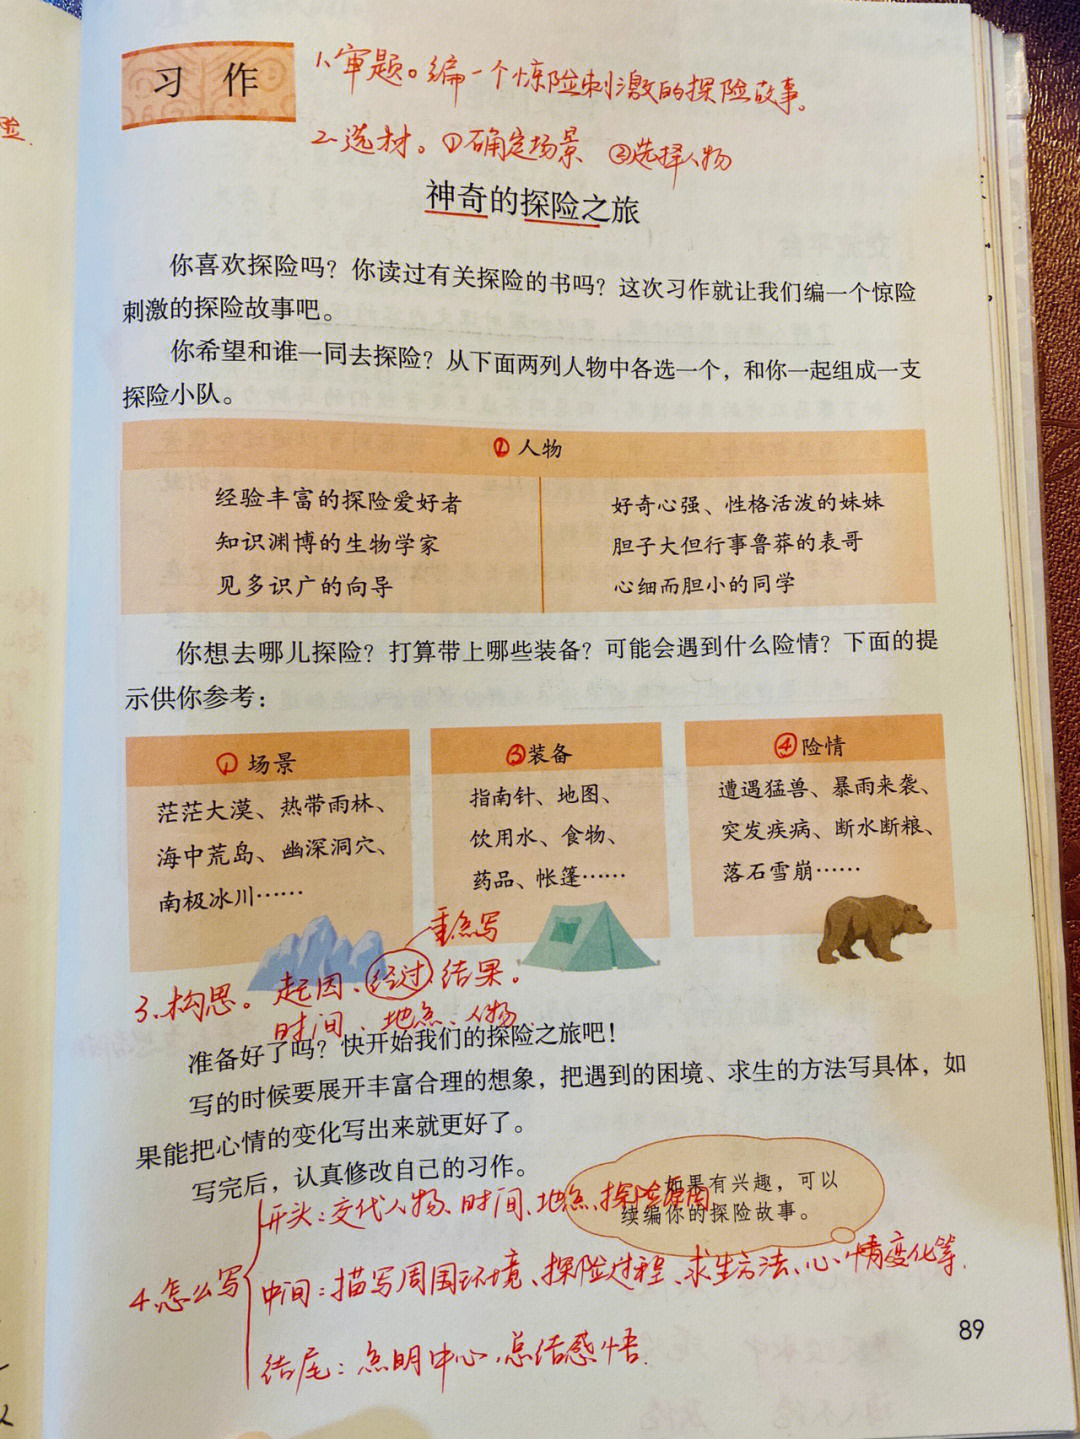 习 作
1、审题。编一个惊险刺激的探险故事。
2、选材。①确定场景 ②选择人物
神奇的探险之旅
你喜欢探险吗？你读过有关探险的书吗？这次习作就让我们编一个惊险
刺激的探险故事吧。
你希望和谁一同去探险？从下面两列人物中各选一个，和你一起组成一支
探险小队。
② 人物
经验丰富的探险爱好者
知识渊博的生物学家
见多识广的向导
好奇心强、性格活泼的妹妹
胆子大但行事鲁莽的表哥
心细而胆小的同学
你想去哪儿探险？打算带上哪些装备？可能会遇到什么险情？下面的提
示供你参考：
① 场景
茫茫大漠、热带雨林、
海中荒岛、幽深洞穴、
南极冰川……
③装备
指南针、地图、
饮用水、食物、
药品、帐篷……
④险情
遭遇猛兽、暴雨来袭、
突发疾病、断水断粮、
落石雪崩……
重点写
3、构思。起因、经过、结果。
时间、地点、人物
准备好了吗？快开始我们的探险之旅吧！
写的时候要展开丰富合理的想象，把遇到的困境、求生的方法写具体，如
果能把心情的变化写出来就更好了。
写完后，认真修改自己的习作。
如果有兴趣，可以
续编你的探险故事。
4、怎么写
开头：交代人物、时间、地点、探险原因
中间：描写周围环境、探险过程、求生方法、心情变化等.
结尾：点明中心，总结感悟.
89
险.